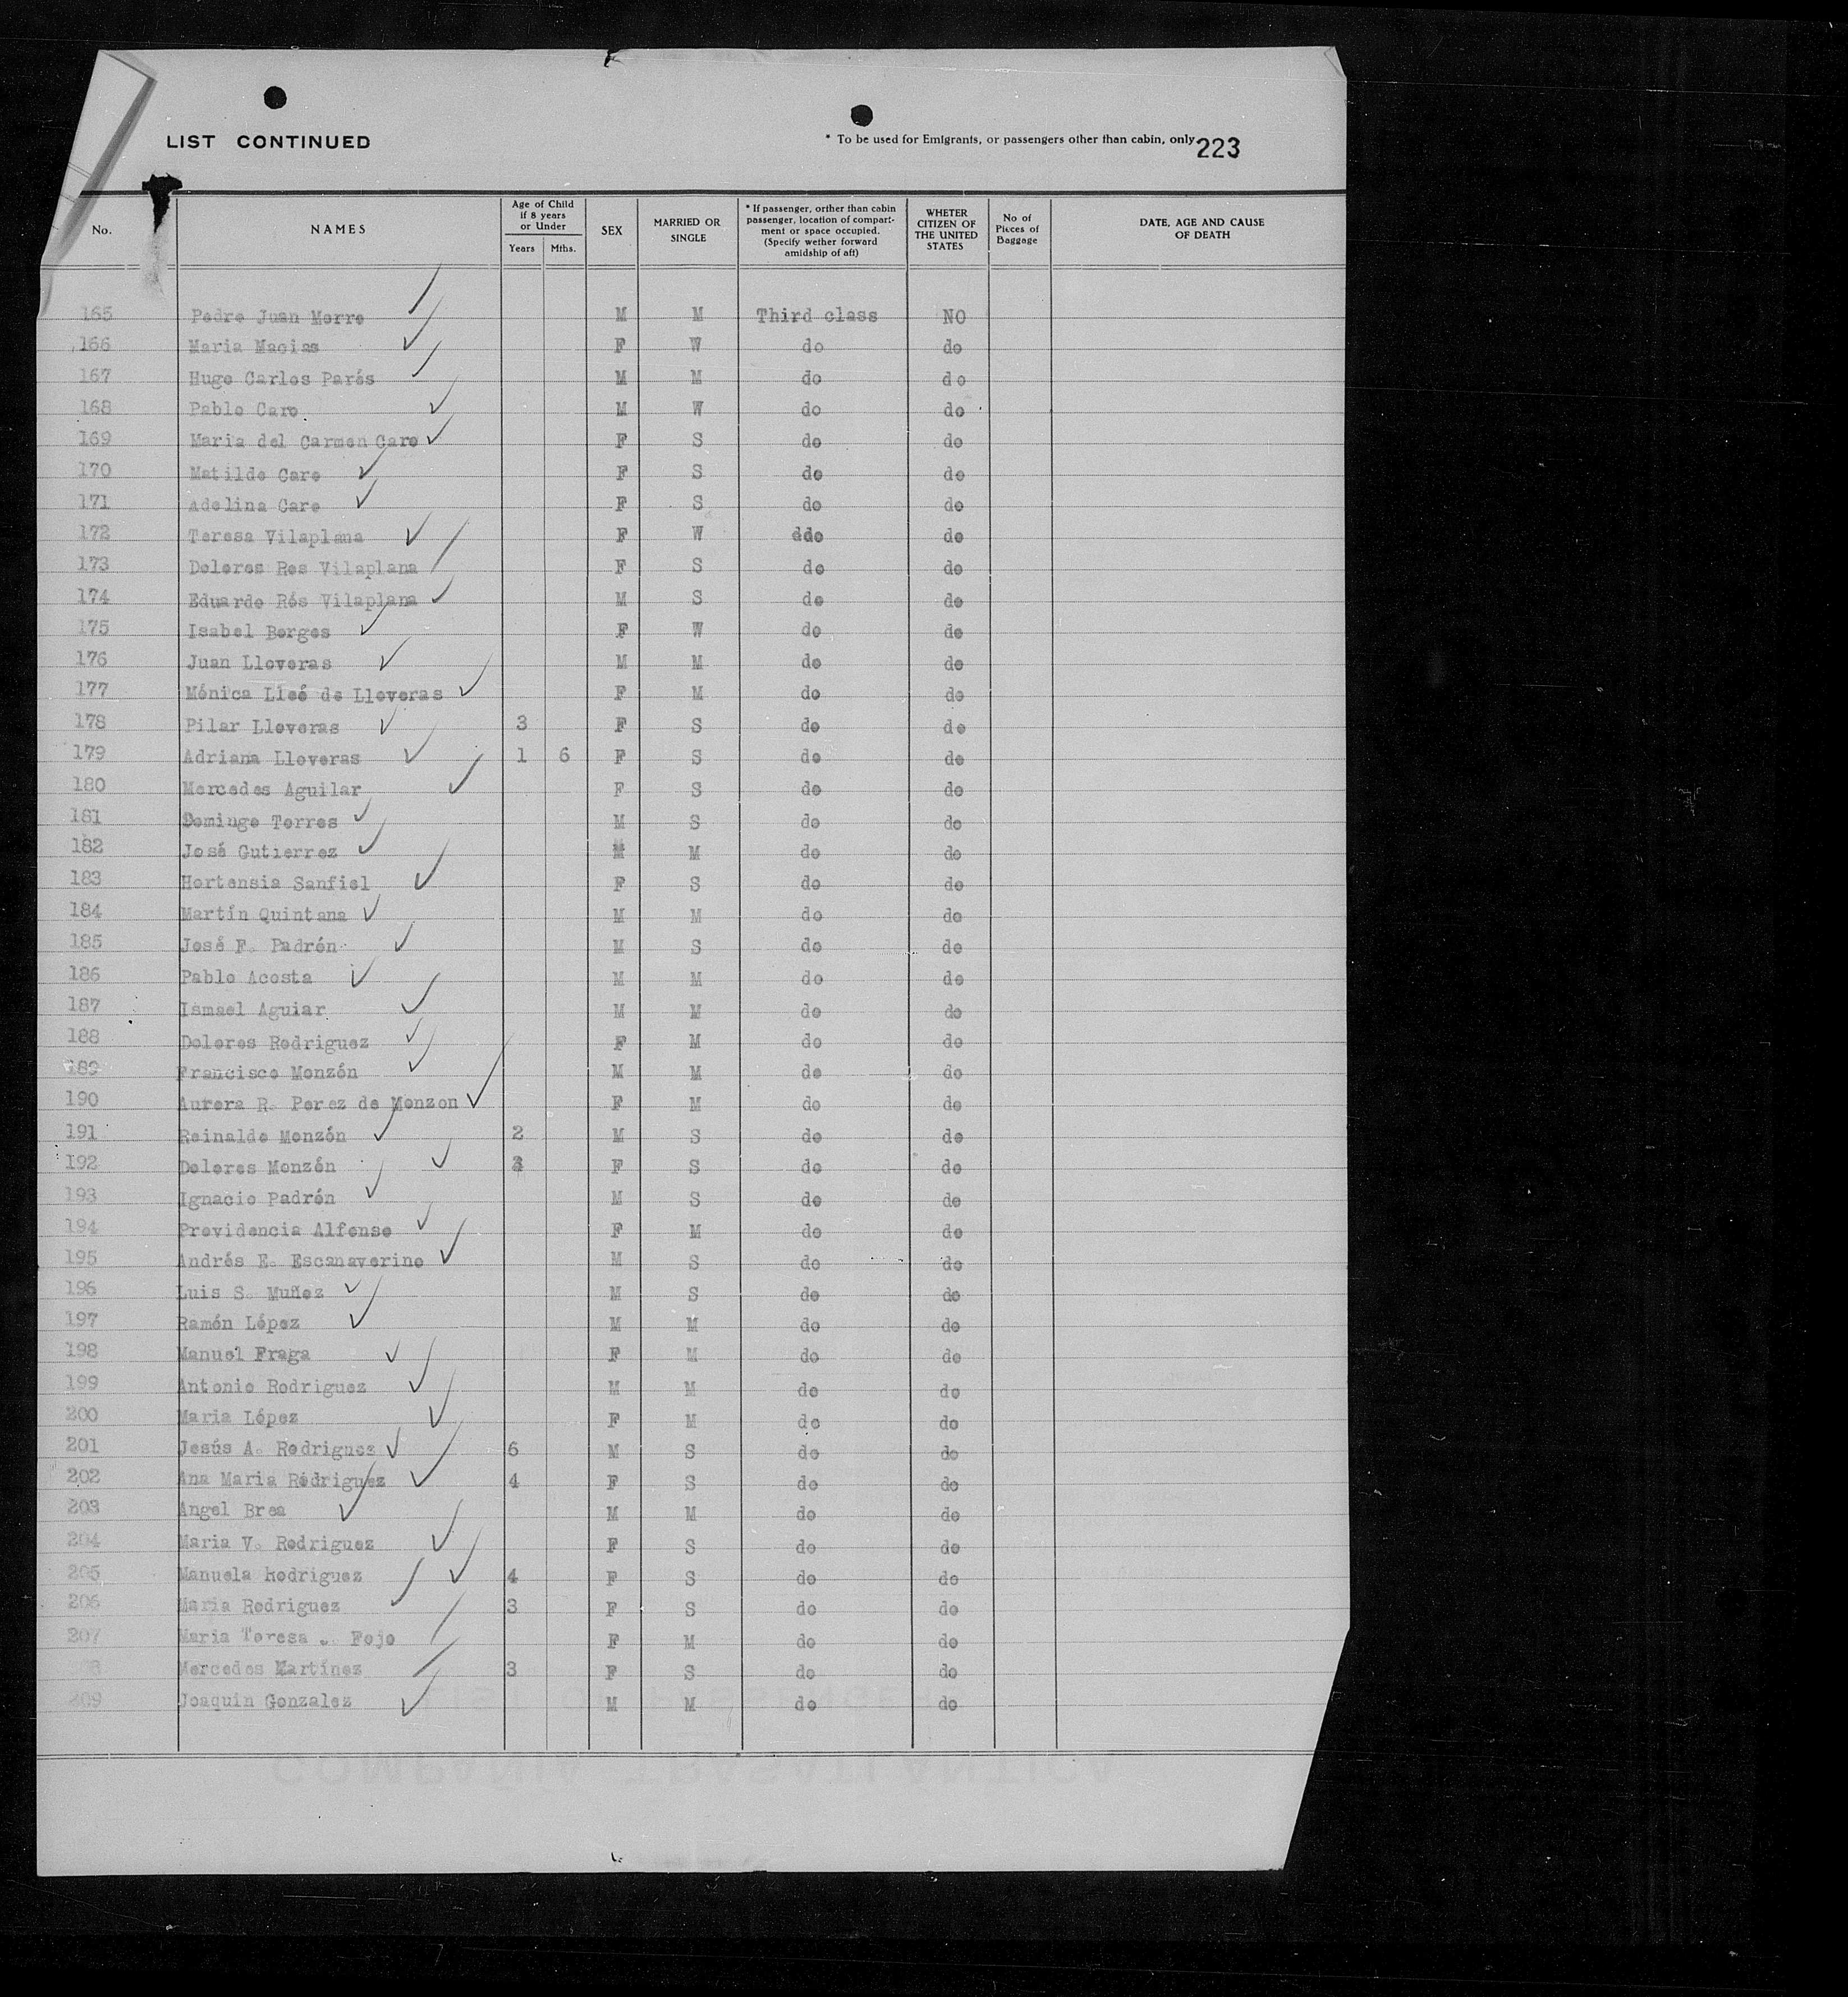 LIST CONTINUED
* To be used for Emigrants, or passengers other than cabin, only
223
No. NAMES Age of Child if 8 years or Under Years Mths. SEX MARRIED OR SINGLE * If passenger, orther than cabin passenger, location of compart-ment or space occupied. (Specify wether forward amidship of aft) WHETER CITIZEN OF THE UNITED STATES No of Pieces of Baggage DATE, AGE AND CAUSE OF DEATH
165 Pedro Juan Morro M M Third class NO
166 Maria Macias F W do do
167 Hugo Carlos Parés M M do do
168 Pablo Caro M W do do
169 Maria del Carmen Caro F S do do
170 Matilde Caro F S do do
171 Adelina Caro F S do do
172 Teresa Vilaplana F W ddo do
173 Dolores Ros Vilaplana F S do do
174 Eduardo Rós Vilaplana M S do do
175 Isabel Borges F W do do
176 Juan Lloveras M M do do
177 Mónica Lleó de Lloveras F M do do
178 Pilar Lloveras 3 F S do do
179 Adriana Lloveras 1 6 F S do do
180 Mercedes Aguilar F S do do
181 Domingo Torres M S do do
182 José Gutierrez M M do do
183 Hortensia Sanfiel F S do do
184 Martín Quintana M M do do
185 José F. Padrón M S do do
186 Pablo Acosta M M do do
187 Ismael Aguiar M M do do
188 Dolores Rodriguez F M do do
189 Francisco Monzón M M do do
190 Aurora R. Perez de Monzon F M do do
191 Reinaldo Monzón 2 M S do do
192 Dolores Monzón F S do do
193 Ignacio Padrón M S do do
194 Providencia Alfonso F M do do
195 Andrés E. Escanaverino M S do do
196 Luis S. Muñoz M S do do
197 Ramón López M M do do
198 Manuel Fraga F M do do
199 Antonio Rodriguez M M do do
200 Maria López F M do do
201 Jesús A. Rodriguez 6 M S do do
202 Ana Maria Rodriguez 4 F S do do
203 Angel Brea M M do do
204 Maria V. Rodriguez F S do do
205 Manuela Rodriguez 4 F S do do
206 Maria Rodriguez 3 F S do do
207 Maria Teresa . Fojo F M do do
Mercedes Martínez 3 F S do do
209 Joaquin Gonzalez M M do do